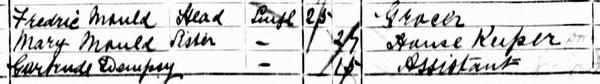 Fredric Mould Head Singl 25 Grocer
Mary Mould Sister - 27 House Keeper
Gertrude Dempsy - 15 Assistant